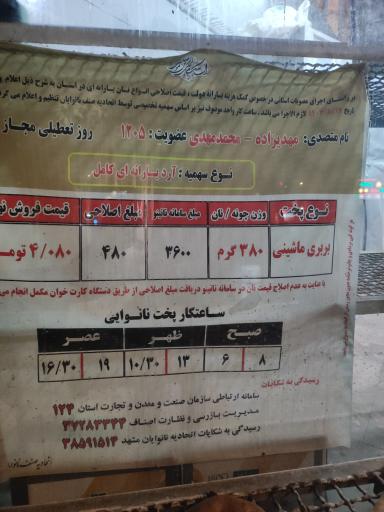 در راستای اجرای مصوبات استانی در خصوص کمک هزینه یارانه دولت، قیمت اصلاحی انواع نان یارانه ای در استان به شرح ذیل اعلام و
لازم الاجرا می باشد، ساعت کار واحد موصوف نیز بر اساس سهمیه تخصیصی توسط اتحادیه صنف نانوایان تنظیم و اعلام می گردد
نام متصدی: مهدیزاده - محمدمهدی عضویت: ۱۲۰۵ روز تعطیلی مجاز
نوع سهمیه: آرد یارانه ای کامل
نوع پخت وزن چونه / نان مبلغ سامانه نانینو مبلغ اصلاحی قیمت فروش
بربری ماشینی ۳۸۰ گرم ۳۶۰۰ ۴۸۰ ۴/۰۸۰
با عنایت به عدم اصلاح قیمت نان در سامانه نانینو دریافت مبلغ اصلاحی از طریق دستگاه کارت خوان مکمل انجام
ساعتکار پخت نانوایی
صبح ظهر عصر
۸ ۶ ۱۳ ۱۰/۳۰ ۱۹ ۱۶/۳۰
رسیدگی به شکایات
سامانه ارتباطی سازمان صنعت و معدن و تجارت استان ۱۲۴
مدیریت بازرسی و نظارت اصناف ۳۷۲۸۳۳۴۴
رسیدگی به شکایات اتحادیه نانوایان مشهد ۳۸۵۹۱۵۱۳
اتحادیه صنف نانوا